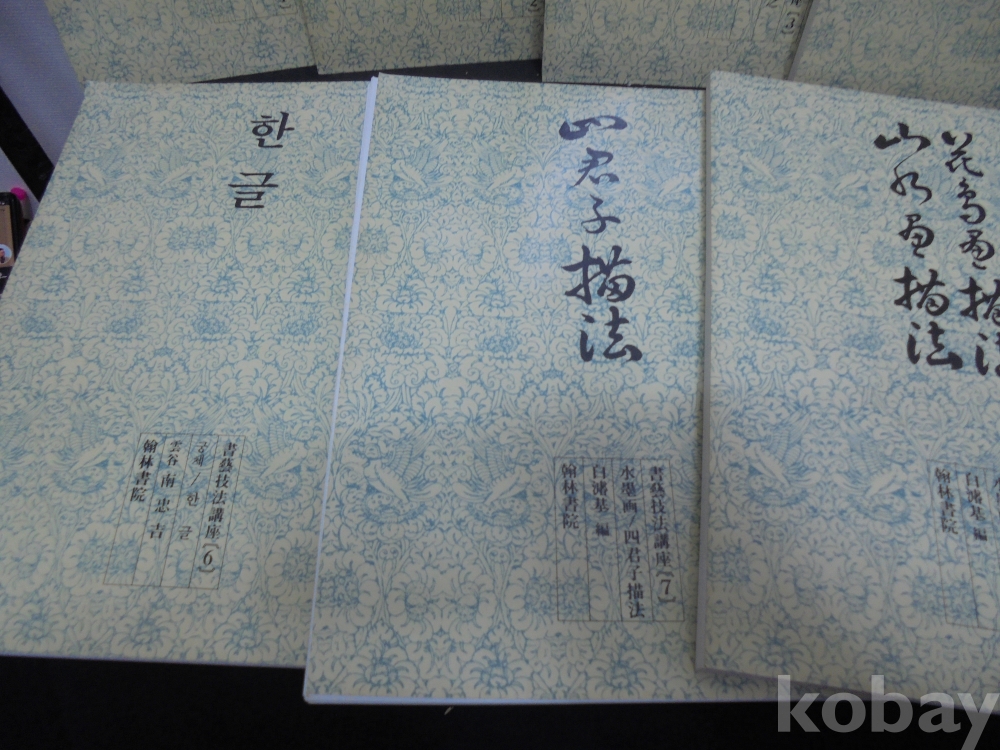 한글
書藝技法講座 (6)
궁체 / 한글
雲谷 南忠吉
翰林書院
四君子描法
書藝技法講座 (7)
水墨画 / 四君子描法
編
翰林書院
花鳥画描法
山水画描法
編
翰林書院
2
3
kobay